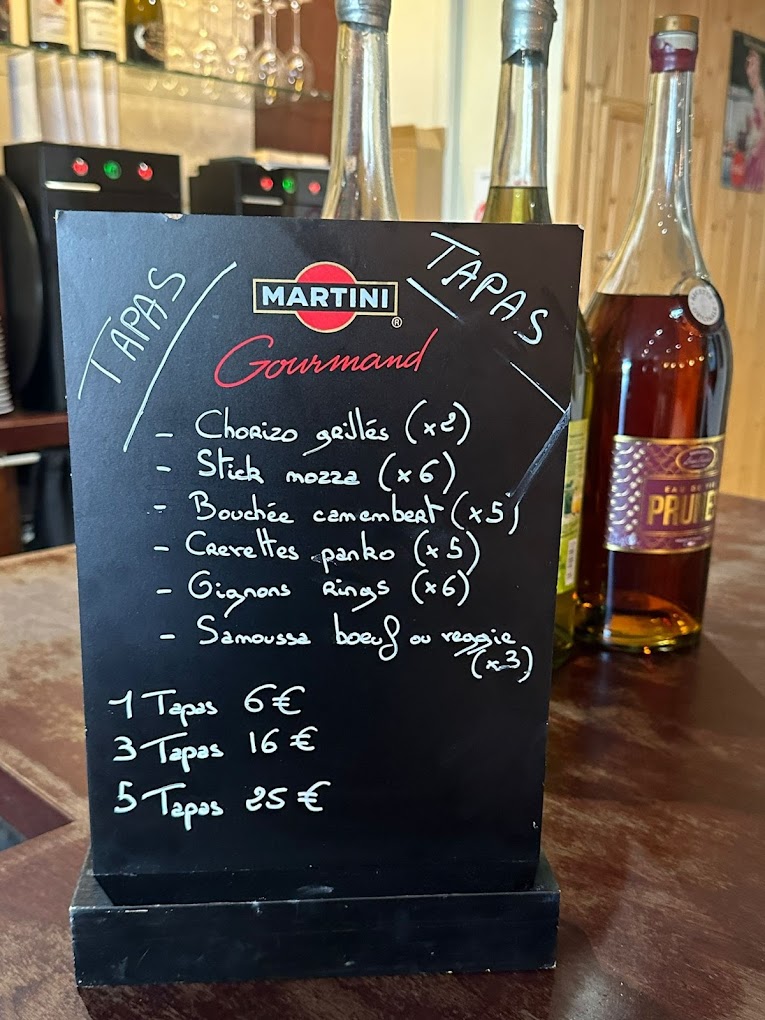 TAPAS
TAPAS
MARTINI
®
Gourmand
- Chorizo grillés (x2)
- Stick mozza (x6)
- Bouchée camembert (x5)
- Crevettes panko (x5)
- Oignons rings (x6)
- Samoussa boeuf ou veggie
(x3)
1 Tapas 6€
3 Tapas 16€
5 Tapas 25€
EAU DE VIE
PRUNE